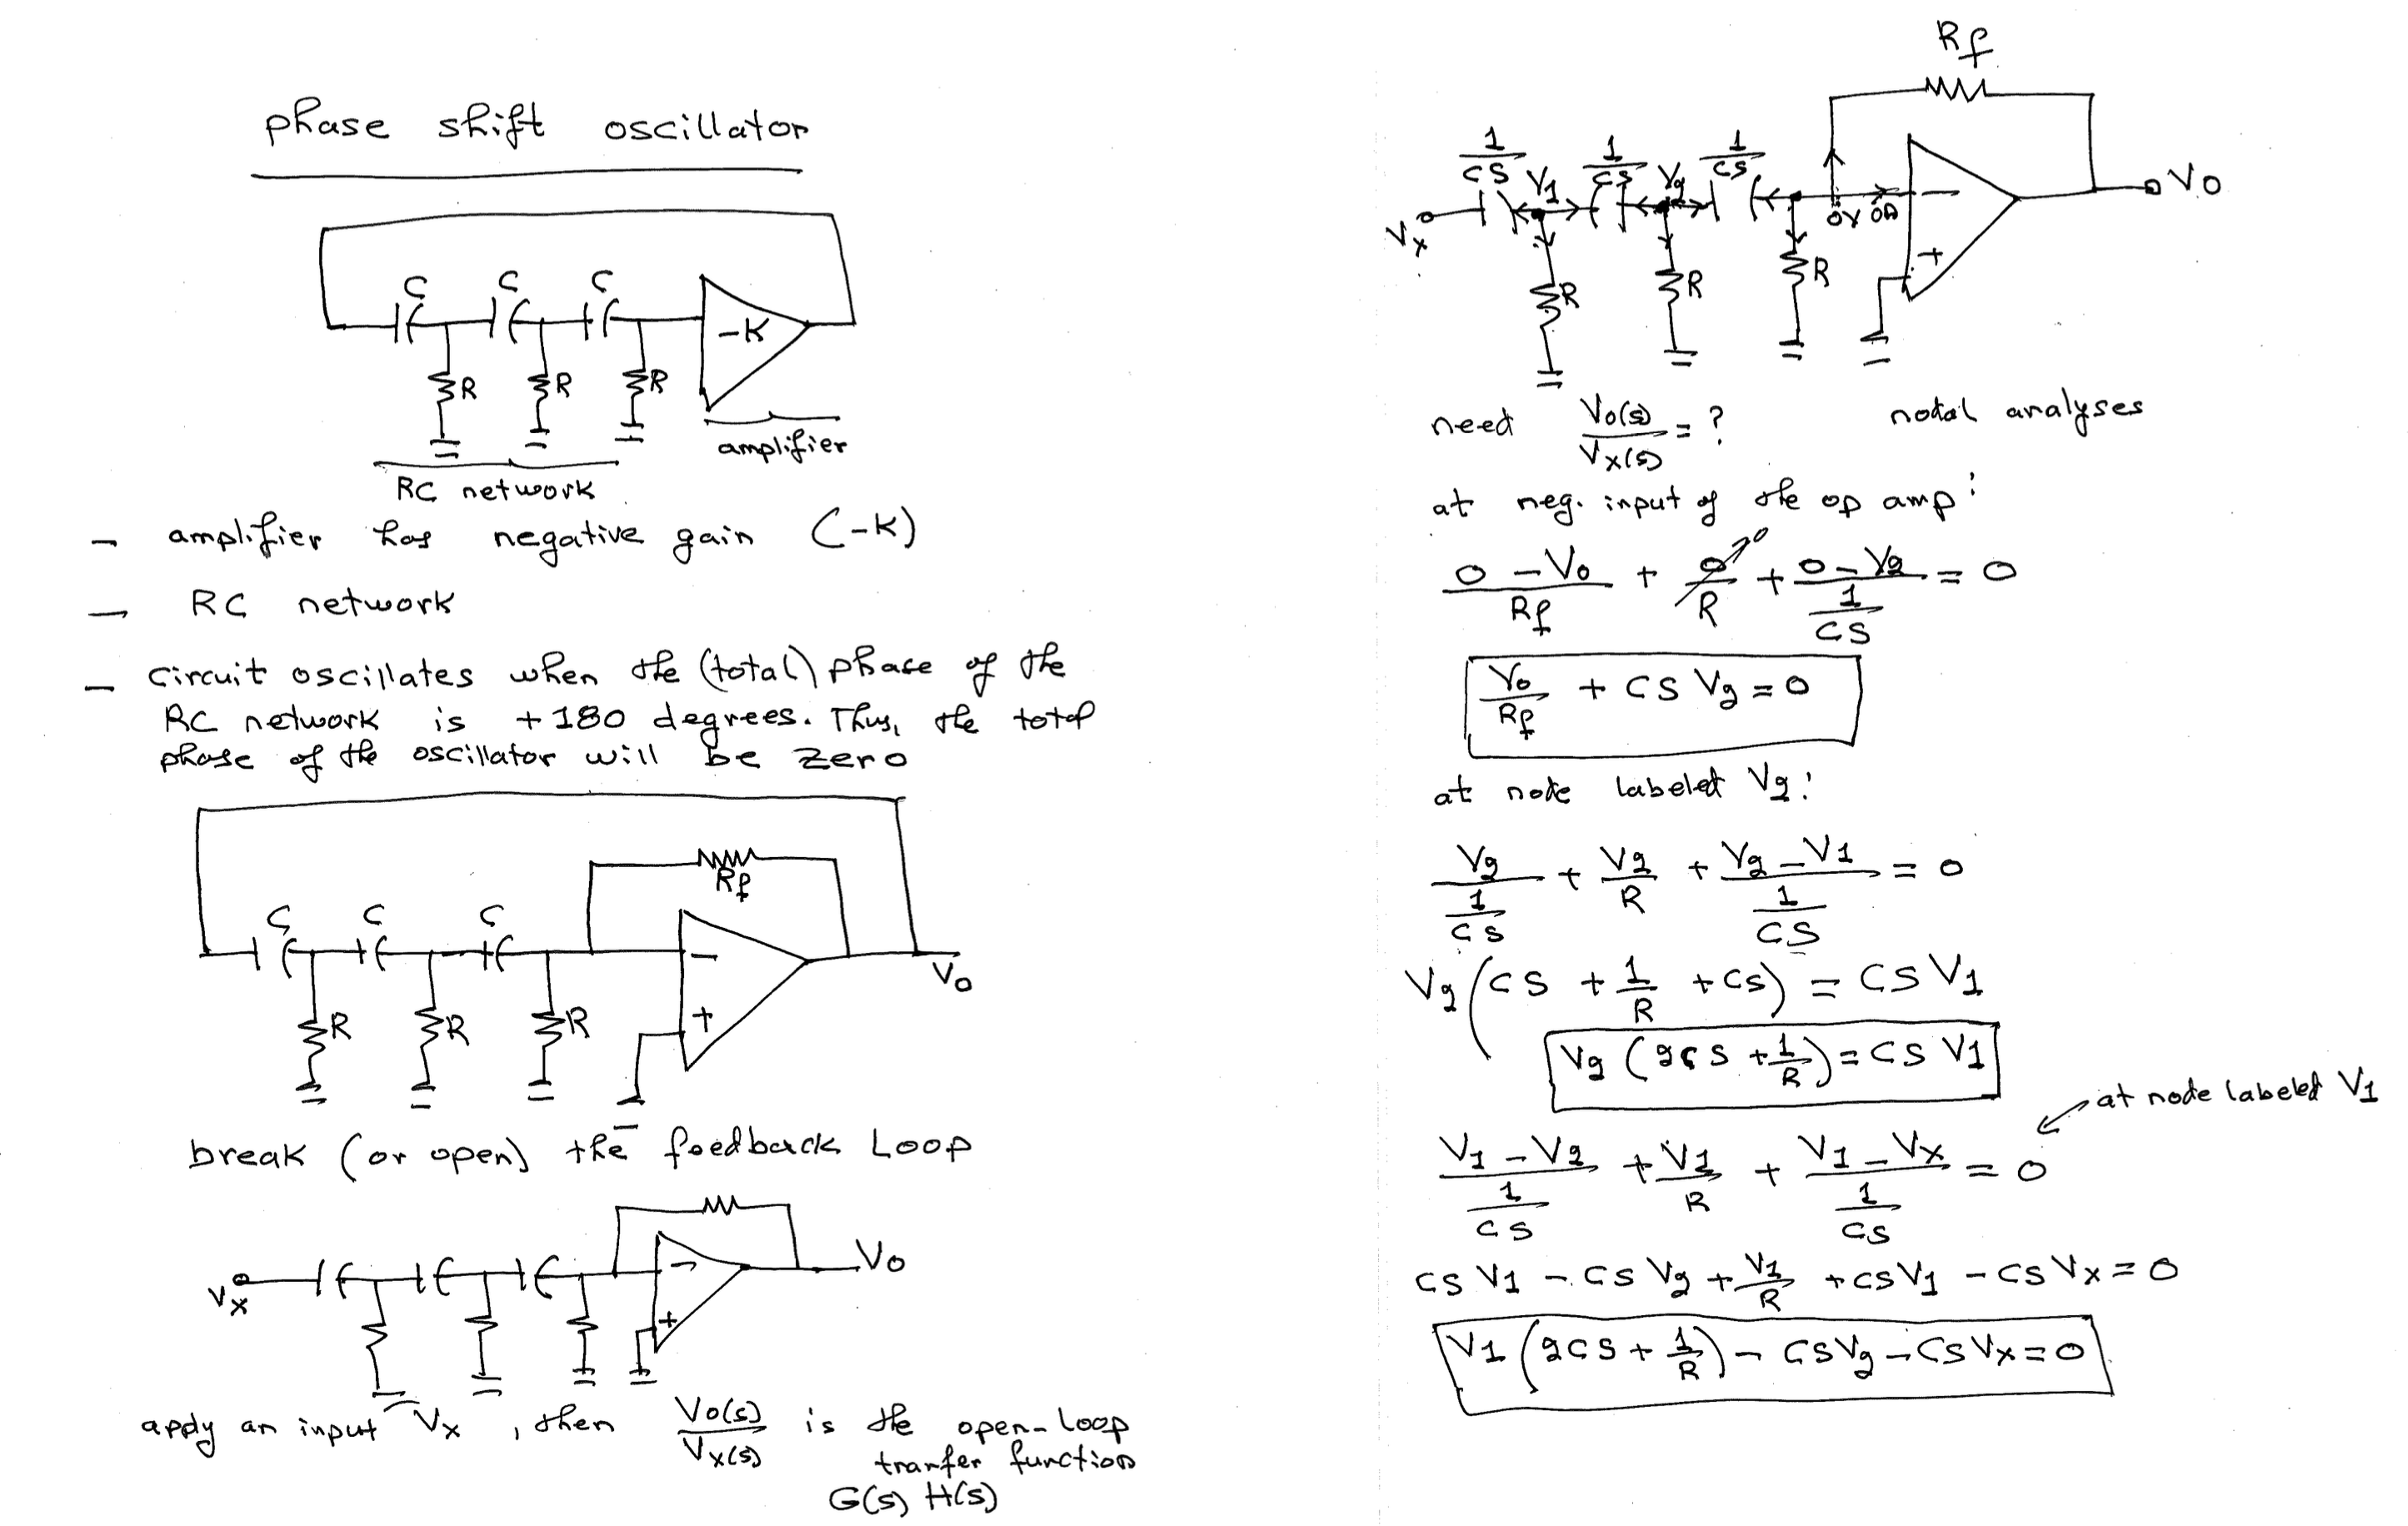 phase shift oscillator
C C C
-K
R R R
amplifier
RC network
- amplifier has negative gain (-K)
- RC network
- circuit oscillates when the (total) phase of the
RC network is +180 degrees. Thus, the total
phase of the oscillator will be zero
Rf
C C C
-
+
Vo
R R R
break (or open) the feedback Loop
Vx
-
+
Vo
apply an input Vx, then Vo(s)/Vx(s) is the open-loop
tranfer function
G(s) H(s)
Rf
1/CS 1/CS 1/CS
V1 V2
Vx
0V 0A
-
+
Vo
R R R
need Vo(s)/Vx(s) = ? nodal analyses
at neg. input of the op amp:
0 - Vo/Rf + 0/R →0 + 0 - V2/(1/CS) = 0
Vo/Rf + CS V2 = 0
at node labeled V2:
V2/(1/CS) + V2/R + V2 - V1/(1/CS) = 0
V2 (CS + 1/R + CS) = CS V1
V2 (2CS + 1/R) = CS V1
at node labeled V1
V1 - V2/(1/CS) + V1/R + V1 - Vx/(1/CS) = 0
CS V1 - CS V2 + V1/R + CS V1 - CS Vx = 0
V1 (2CS + 1/R) - CS V2 - CS Vx = 0